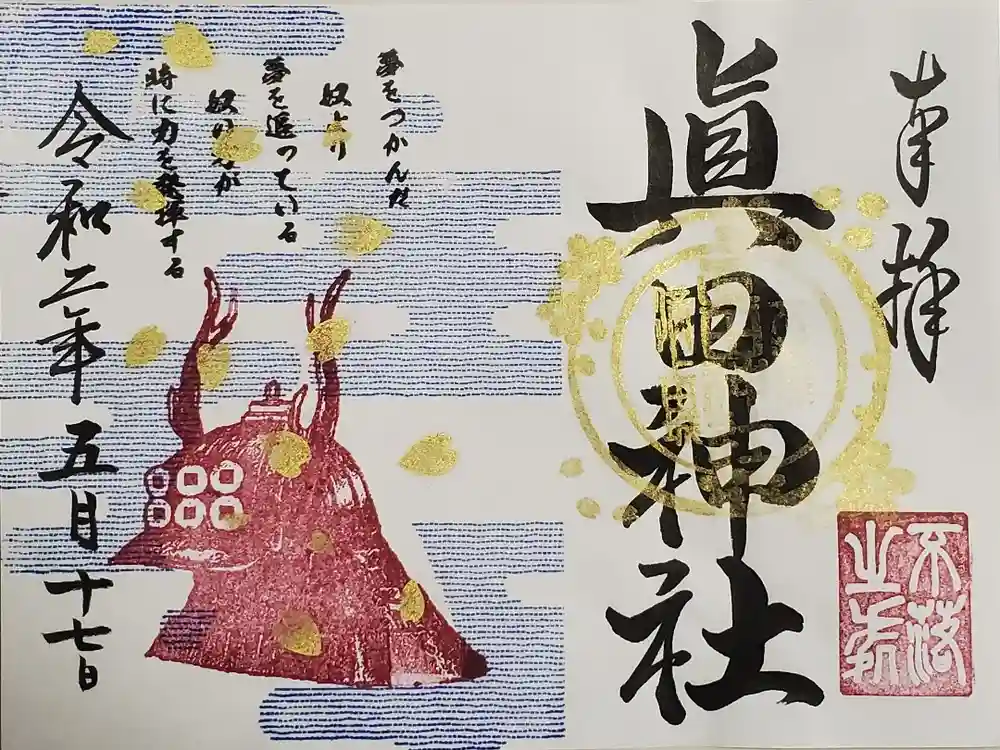 奉拝
眞田神社
不落
之砦
夢をつかんだ
奴より
夢を追っている
奴の方が
時に力を発揮する
令和二年五月十七日